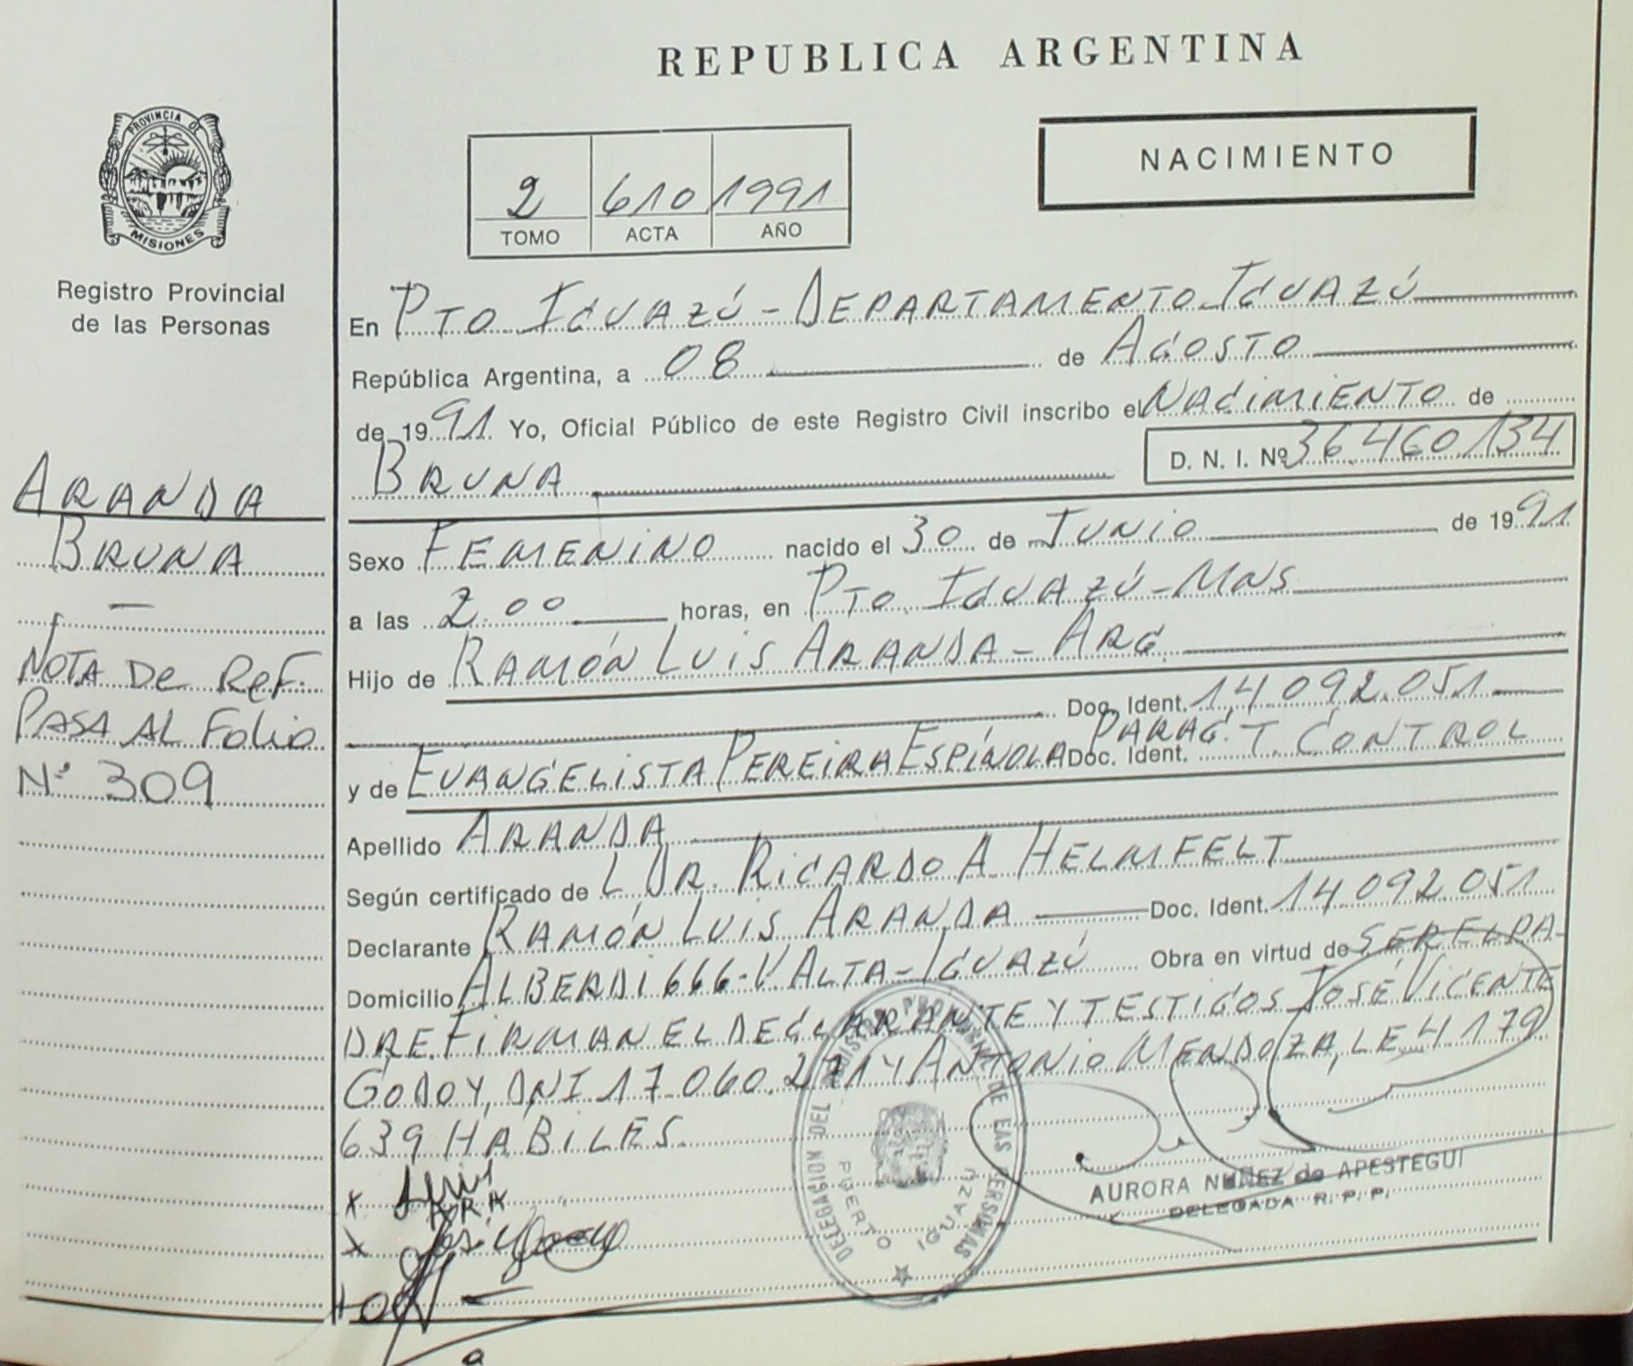 REPUBLICA ARGENTINA
PROVINCIA DE
MISIONES
Registro Provincial
de las Personas
2 610 1991
TOMO ACTA AÑO
NACIMIENTO
En Pto Iguazú - Departamento Iguazú
República Argentina, a 08 de Agosto
de 1991. Yo, Oficial Público de este Registro Civil inscribo el Nacimiento de
Bruna D. N. I. Nº 36.460.134
Sexo Femenino nacido el 30 de Junio de 1991
a las 2.00 horas, en Pto. Iguazú - Mns
Hijo de Ramón Luis Aranda - Arg.
Doc. Ident. 14.092.051
Parag.
y de Evangelista Pereira Espínola Doc. Ident. T. Control
Apellido Aranda
Según certificado de L Dr. Ricardo A Helmfelt
Declarante Ramón Luis Aranda Doc. Ident. 14.092.051
Domicilio Alberdi 666 - V. Alta - Iguazú Obra en virtud de ser el pa-
dre. Firman el declarante y testigos José Vicente
Godoy, DNI 17.060.271 y Antonio Mendoza, LE 4179
639 Hábiles.
ARANDA
BRUNA
Nota de Ref.
Pasa al Folio
Nº 309
x
x
DELEGACION DEL REGISTRO PROVINCIAL DE LAS PERSONAS
PUERTO IGUAZÚ
AURORA NUÑEZ de APESTEGUI
DELEGADA R. P. P.